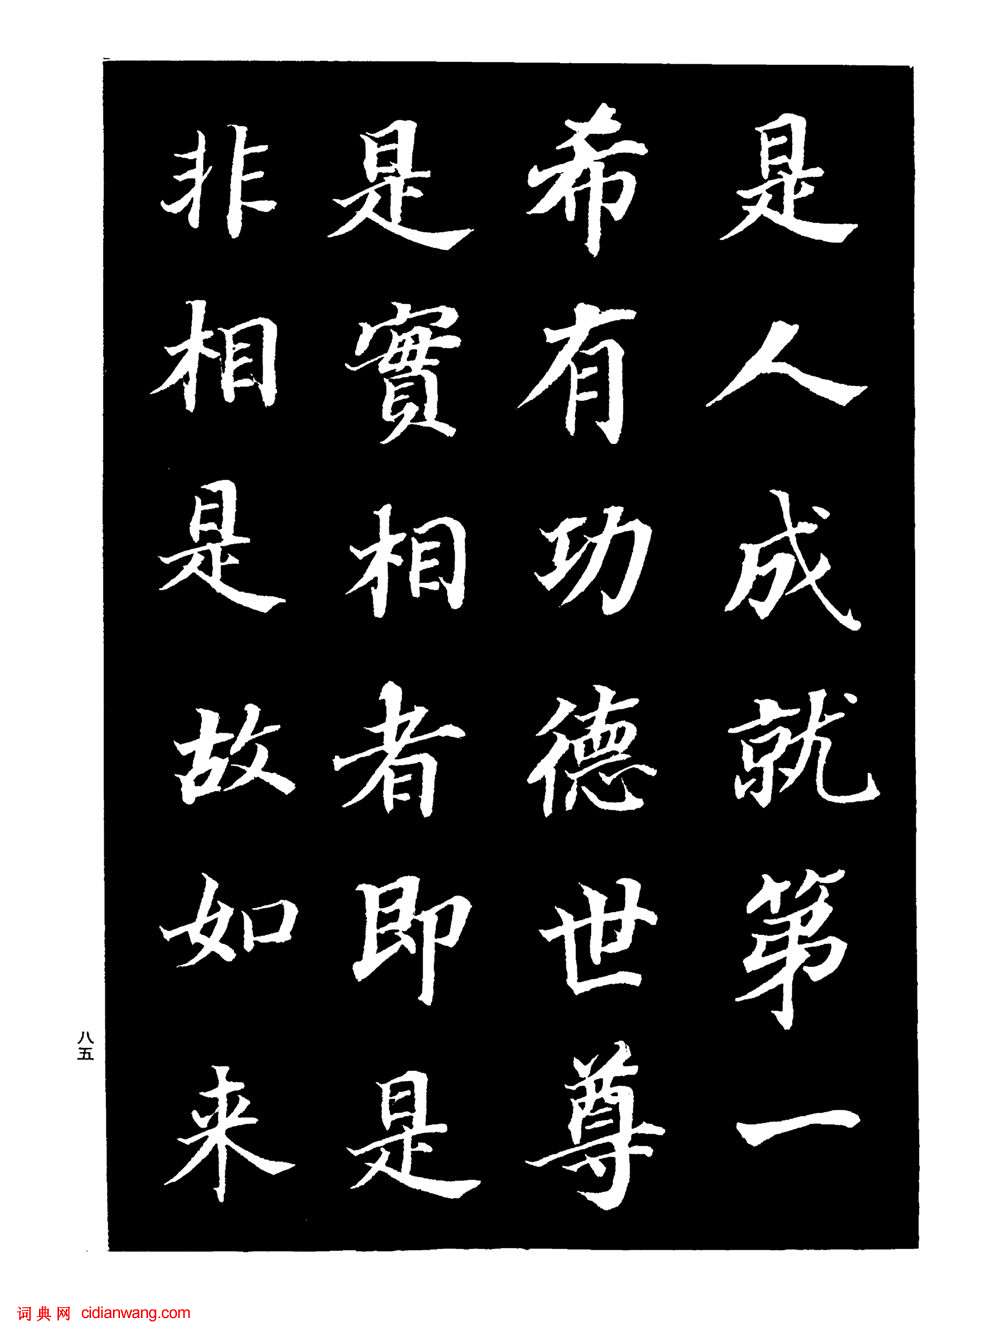 是人成就第一
希有功德世尊
是實相者即是
非相是故如来
八五
词典网 cidianwang.com